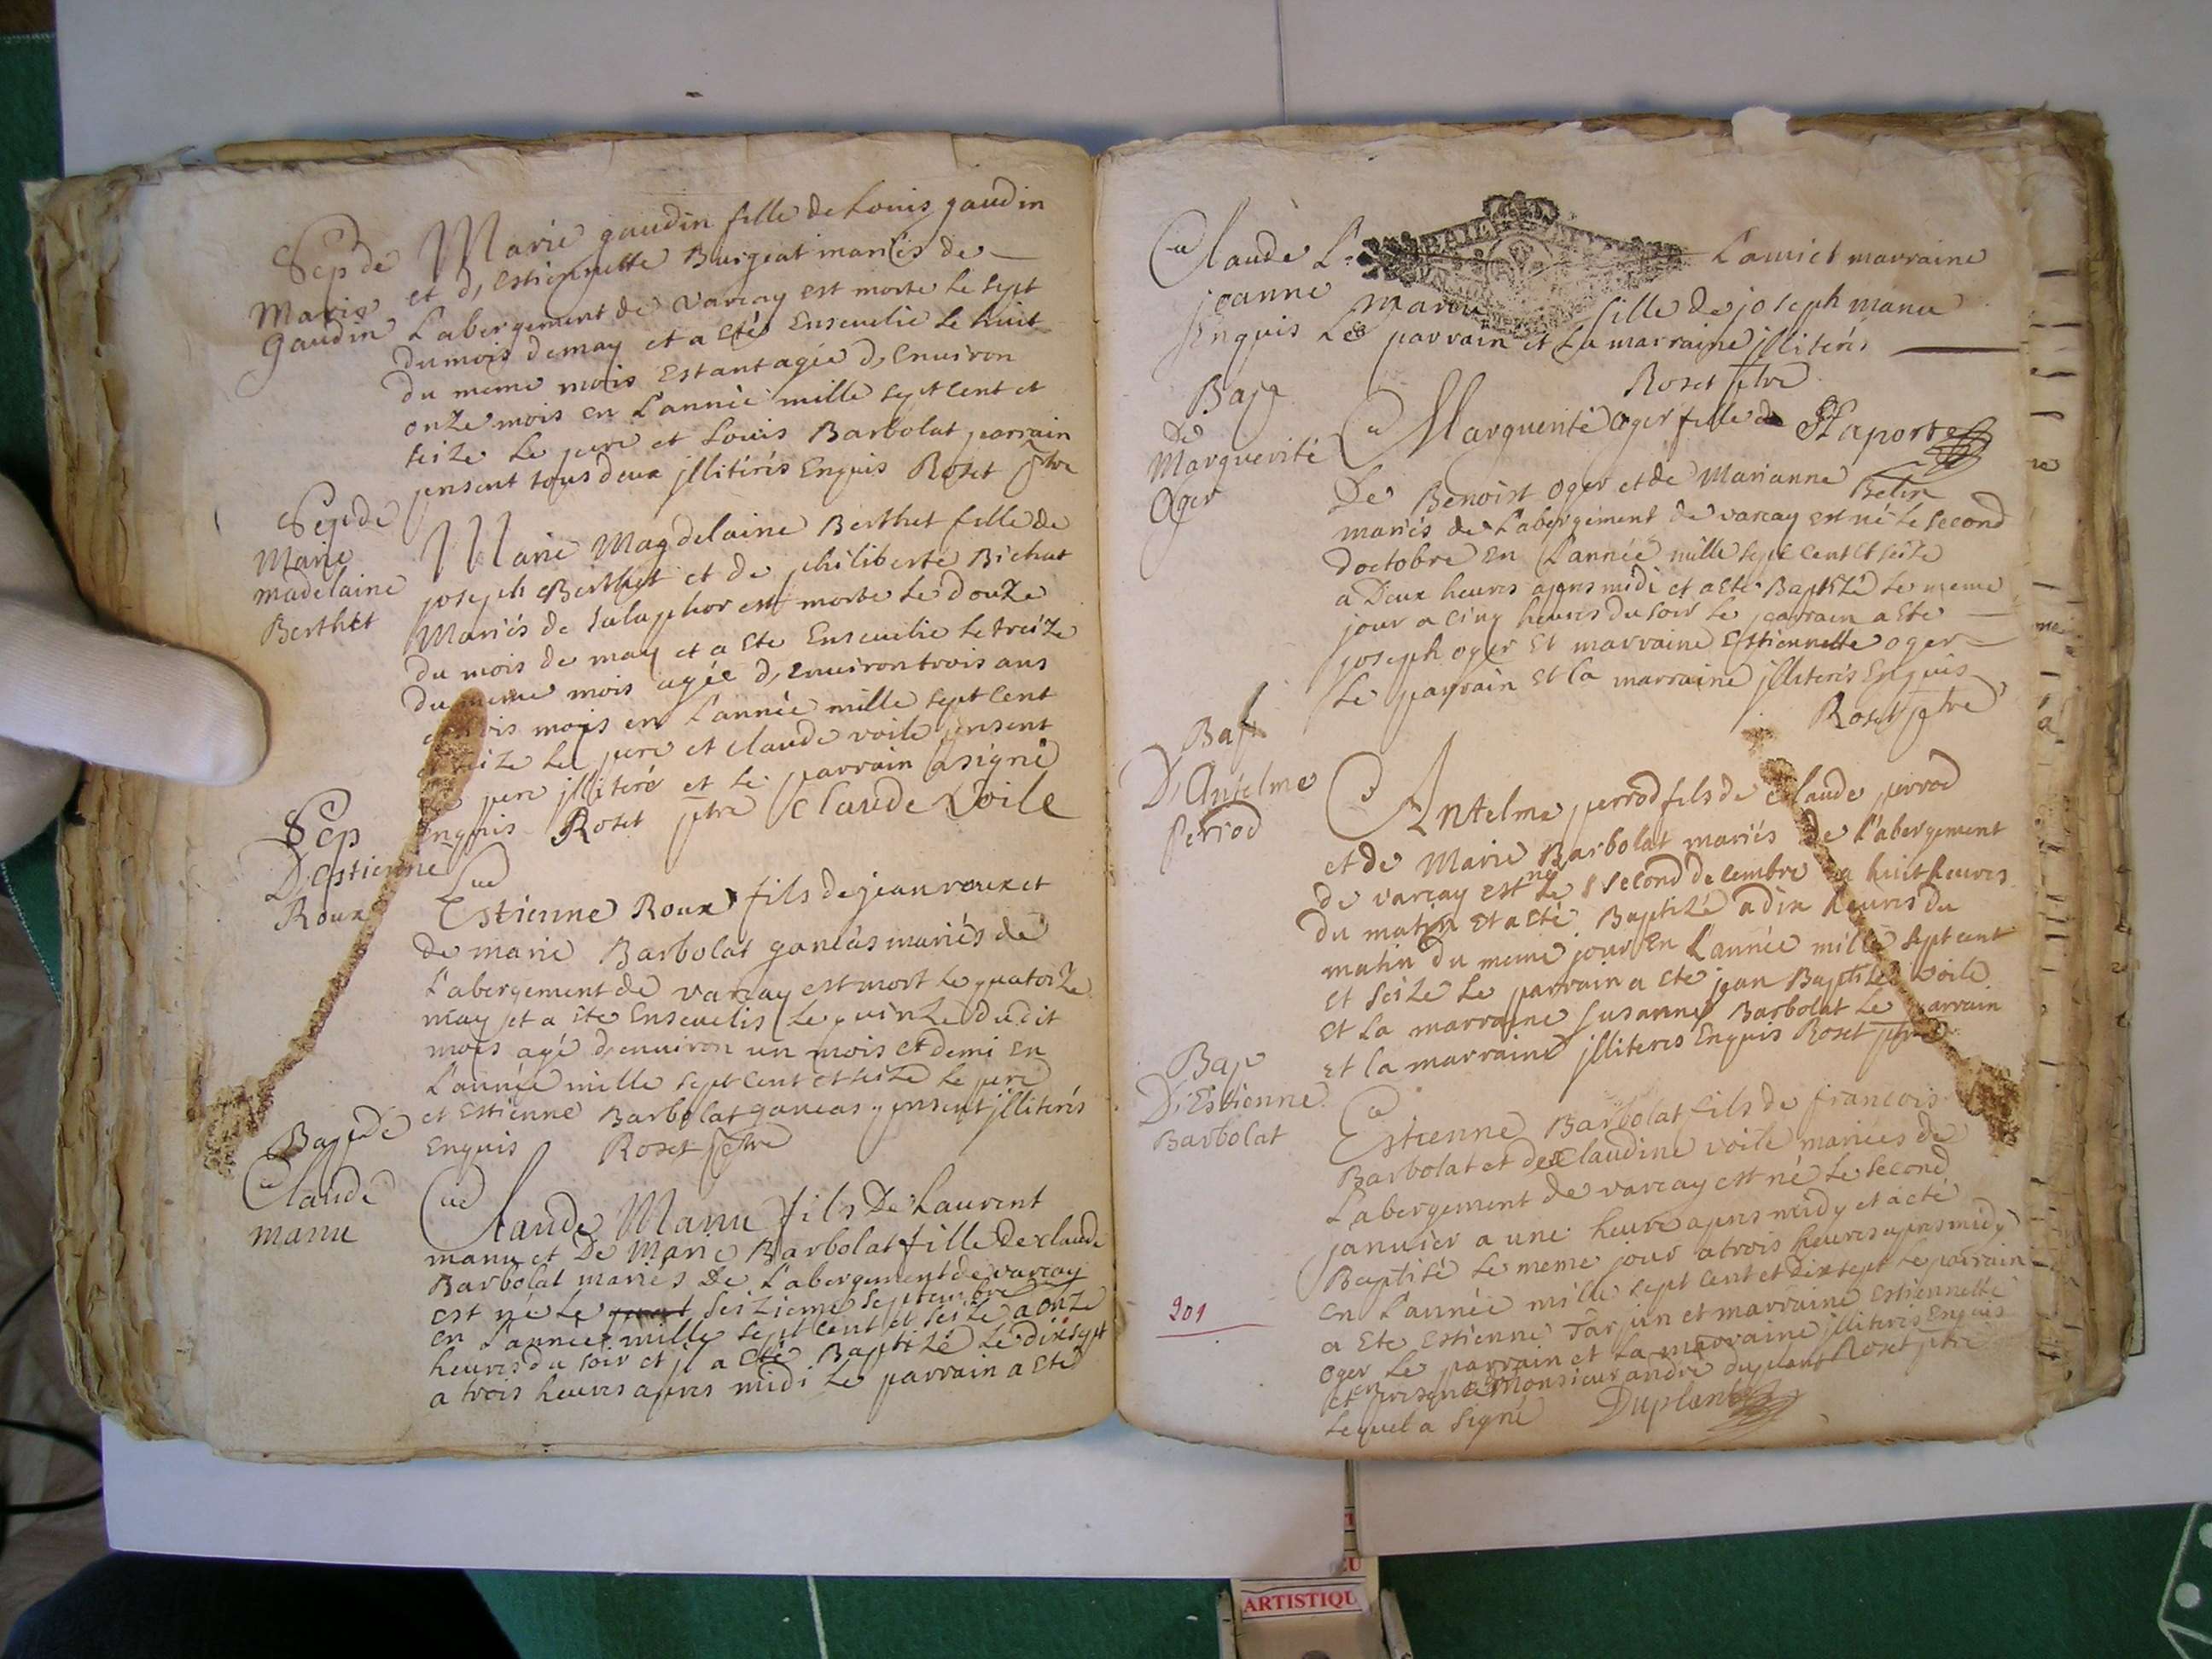 Sep de
Marie
Gaudin
Marie gaudin fille de Louis gaudin
et d, estiennette Burgeat mariés de
L'abergement de varcay est morte le sept
du mois demay et a eté Enseuelie le huit
du meme mois estant agée d, enuiron
onze mois en L'année mille sept cent et
seize Le pere et Louis Barbolat parrain
pnsent tous deux jllitérés Enquis Roset ptre
Sep de
Marie
madelaine
Berthet
Marie Magdelaine Berthet fille de
joseph Berthet et de philiberte Bichat
Mariés de Salaphor est morte le douze
du mois de may et a ete Enseuelie le treize
du meme mois agée d, enuiron trois ans
mois en L'année mille sept cent
Le pere et claude voile pnsent
pere jllitéré et le parrain a signé
Enquis Roset ptre Claude Voile
Sep
D, Estienne
Roux
Estienne Roux fils de jean roux et
de marie Barbolat ganeas mariés de
L'abergement de varcay est mort le quatorze
may et a ete Enseuelis le quinze dudit
mois agé d, enuiron un mois et demi en
L'année mille sept cent et seize le pere
et Estienne Barbolat ganeas pnsent jllitérés
Enquis Roset ptre
Bap de
Claude
manu
Claude Manu fils De Laurent
manu et De Marie Barbolat fille de claude
Barbolat mariés de L'abergement de varcay
est né le seizieme septembre
en L'année mille sept cent et seize a onze
heures du soir et jl a eté Baptizé le dixsept
a trois heures apres midi Le parrain a ete
Claude marraine
jeanne manu fille de joseph manu
Enquis Le parrain et La marraine jllitérés
Roset ptre
Bap
De
Marguerité
Oger
Marguerité oger fille de Laporte
De Benoist oger et de Marianne
mariés de L'abergement de varcay est né le second
doctobre en L'année mille sept cent et seize
a Deux heures apres midi et a ete Baptizé le meme
jour a cinq heures du soir Le parrain a ete
joseph oger et marraine Estiennette oger
Le parrain et la marraine jlliterés Enquis
Roset ptre
Bap
D, Antelme
Perrod
Antelme perrod fils de claude perrod
et de Marie Barbolat mariés de L'abergement
de varcay est né le second decembre a huit heures
du matin et a eté Baptizé a dix heures du
matin du meme jour en L'année mille sept cent
et seize Le parrain a ete jean Baptiste voile
et La marraine Susanne Barbolat Le parrain
et la marraine jlliteres Enquis Roset ptre
Bap
D, Estienne
Barbolat
Estienne Barbolat fils de francois
Barbolat et de claudine voile mariées de
L'abergement de varcay est né le second
januier a une heure apres midy et a eté
Baptisé le meme jour a trois heures apres midy
en L'année mille sept cent et dixsept Le parrain
a ete Estienne Tarpin et marraine Estiennette
oger Le parrain et La marraine jlliterés Enquis
et en presence Monsieur andré duplant Roset ptre
lequel a signé Duplant
201
ARTISTIQU